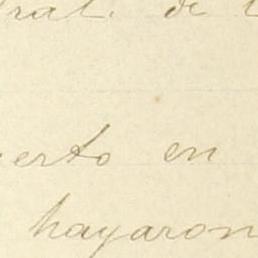 ral. de
erto en
hayaron